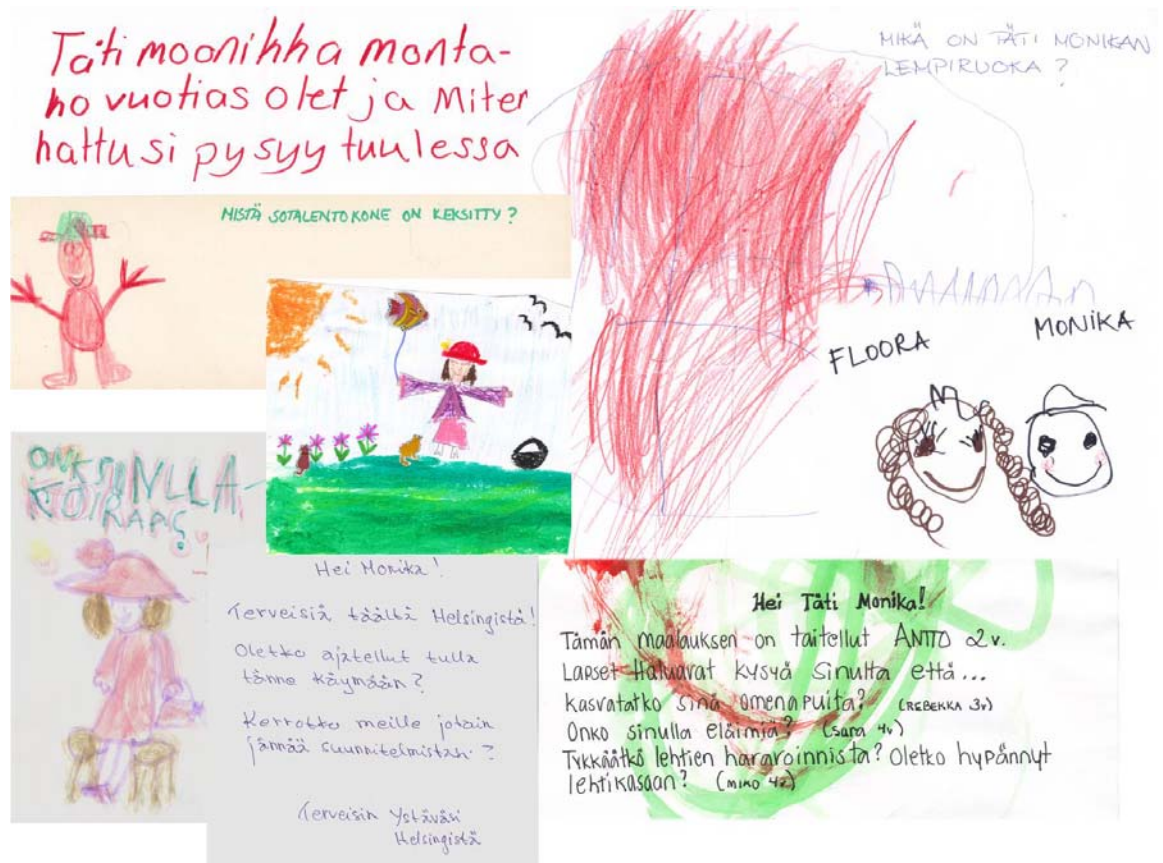 Täti moonikha monta-
ho vuotias olet ja Miter
hattusi pysyy tuulessa
MIKÄ ON TÄTI MONIKAN
LEMPIRUOKA ?
MISTÄ SOTALENTOKONE ON KEKSITTY ?
FLOORA
MONIKA
ONKSINULLA
KOIRAA
Hei Monika!
Terveisiä täältä Helsingistä!
Oletko ajatellut tulla
tänne käymään?
Kerrotko meille jotain
jännää suunnitelmistasi ?
Terveisin Ystäväsi
Helsingistä
Hei Täti Monika!
Tämän maalauksen on taitellut ANTTO 2v.
Lapset Haluavat kysyä sinulta että...
Kasvatatko sinä omenapuita? (REBEKKA 3v)
Onko sinulla eläimiä? (Sara 4v)
Tykkäätkö lehtien haravoinnista? Oletko hypännyt
lehtikasaan? (MIKO 4v)